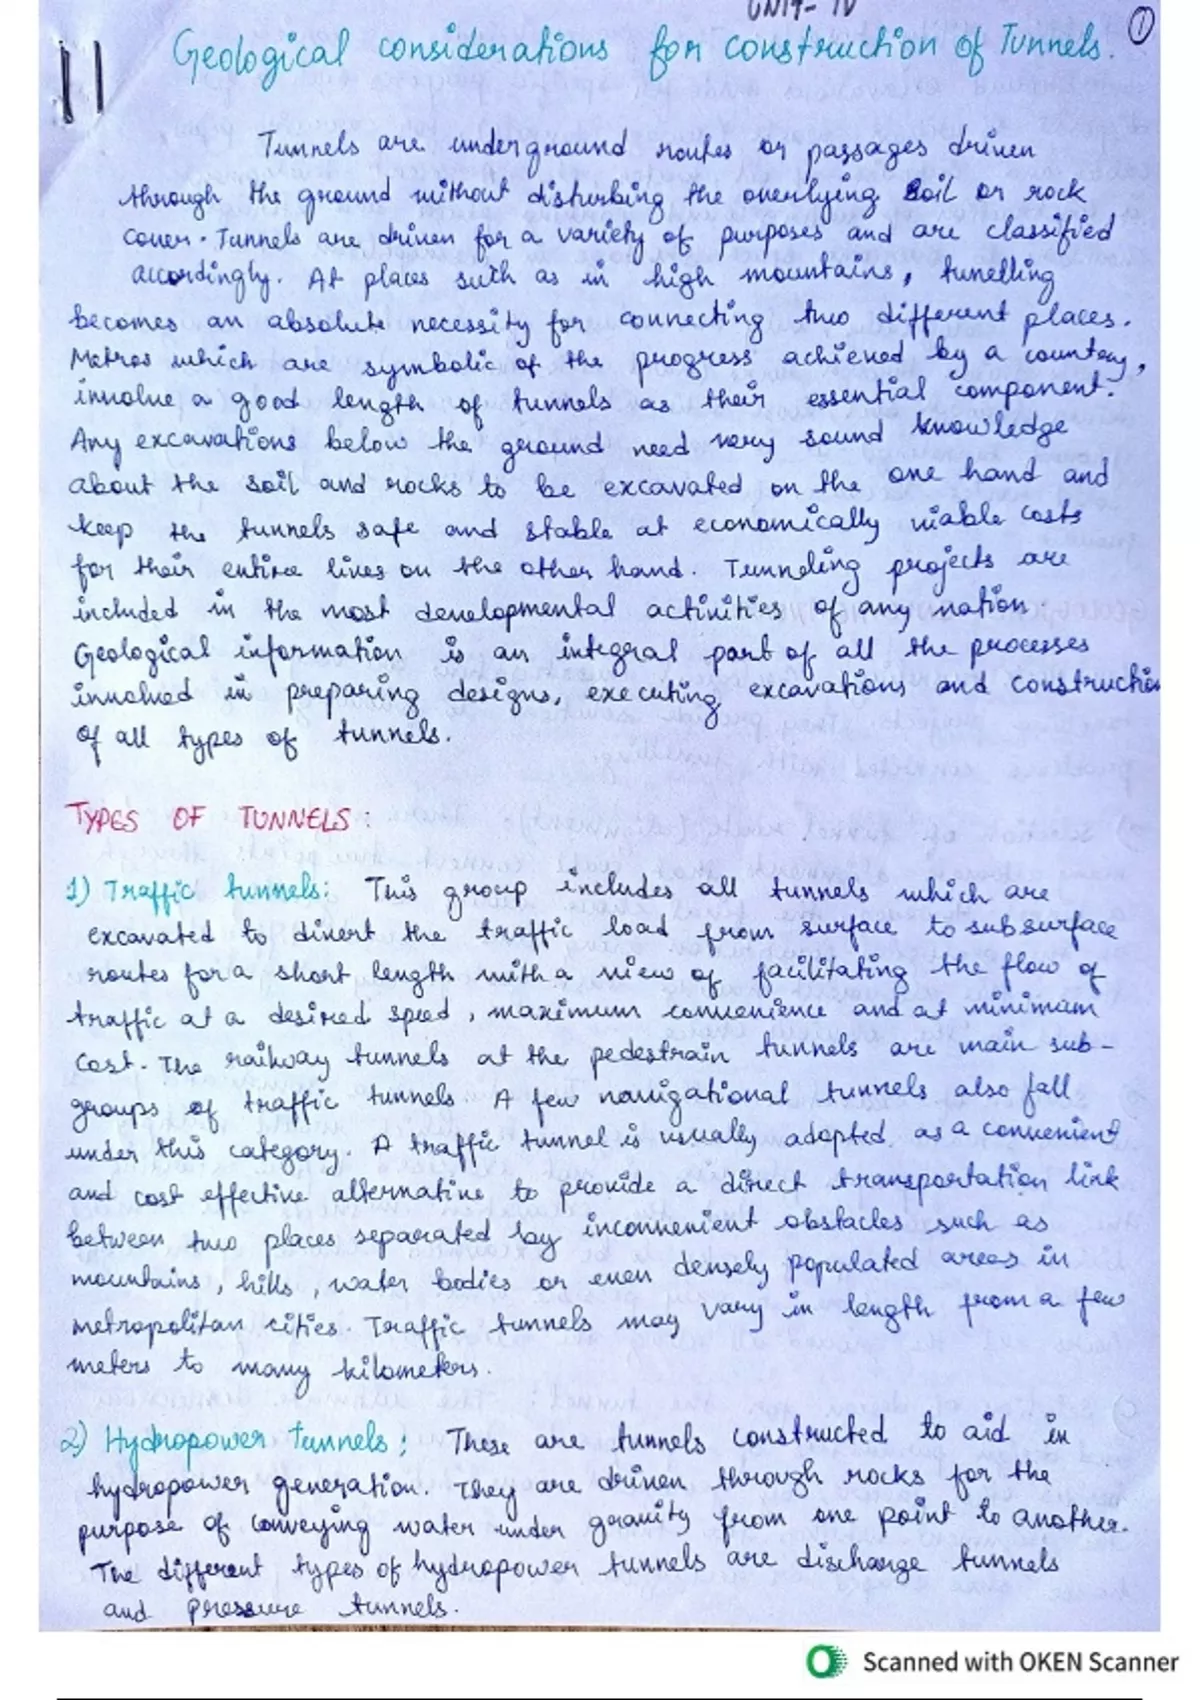 UNIT- IV
1
Geological considerations for construction of Tunnels.
Tunnels are underground routes or passages driven
through the ground without disturbing the overlying soil or rock
cover. Tunnels are driven for a variety of purposes and are classified
accordingly. At places such as in high mountains, tunelling
becomes an absolute necessity for connecting two different places.
Metros which are symbolic of the progress achieved by a country,
involve a good length of tunnels as their essential component.
Any excavations below the ground need very sound knowledge
about the soil and rocks to be excavated on the one hand and
keep the tunnels safe and stable at economically viable costs
for their entire lives on the other hand. Tunneling projects are
included in the most developmental activities of any nation.
Geological information is an integral part of all the processes
involved in preparing designs, executing excavations and construction
of all types of tunnels.
TYPES OF TUNNELS:
1) Traffic tunnels: This group includes all tunnels which are
excavated to divert the traffic load from surface to subsurface
routes for a short length with a view of facilitating the flow of
traffic at a desired speed, maximum convenience and at minimum
cost. The railway tunnels at the pedestrain tunnels are main sub-
groups of traffic tunnels. A few navigational tunnels also fall
under this category. A traffic tunnel is usually adopted as a convenient
and cost effective alternative to provide a direct transportation link
between two places separated by inconvenient obstacles such as
mountains, hills, water bodies or even densely populated areas in
metropolitan cities. Traffic tunnels may vary in length from a few
meters to many kilometers.
2) Hydropower Tunnels: These are tunnels constructed to aid in
hydropower generation. They are driven through rocks for the
purpose of conveying water under gravity from one point to another.
The different types of hydropower tunnels are discharge tunnels
and pressure tunnels.
Scanned with OKEN Scanner